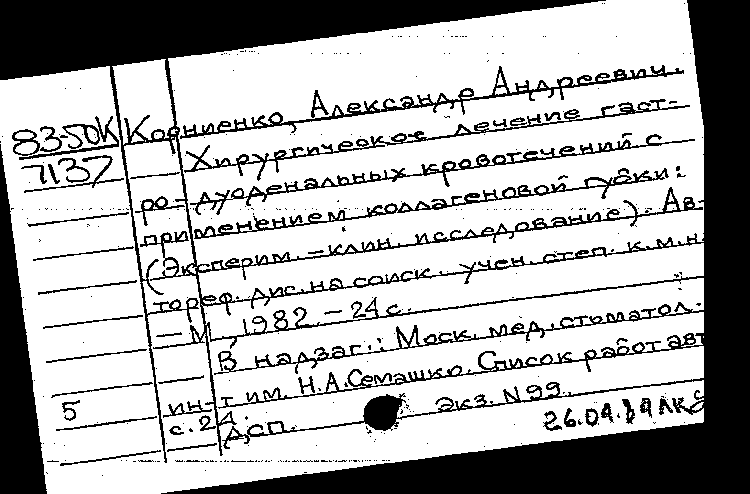 83-50К Корниенко, Александр Андреевич.
7137 Хирургическое лечение гаст-
ро-дуоденальных кровотечений с
применением коллагеновой губки:
(Эксперим.-клин. исследование). Ав-
тореф. дис. на соиск. учен. степ. к.м.н
—М, 1982.—24 с.
В надзаг.: Моск. мед. стоматол.
ин-т им. Н.А.Семашко. Список работ авт
5 с. 24.
Дсп. экз. N 99.
26.04.84